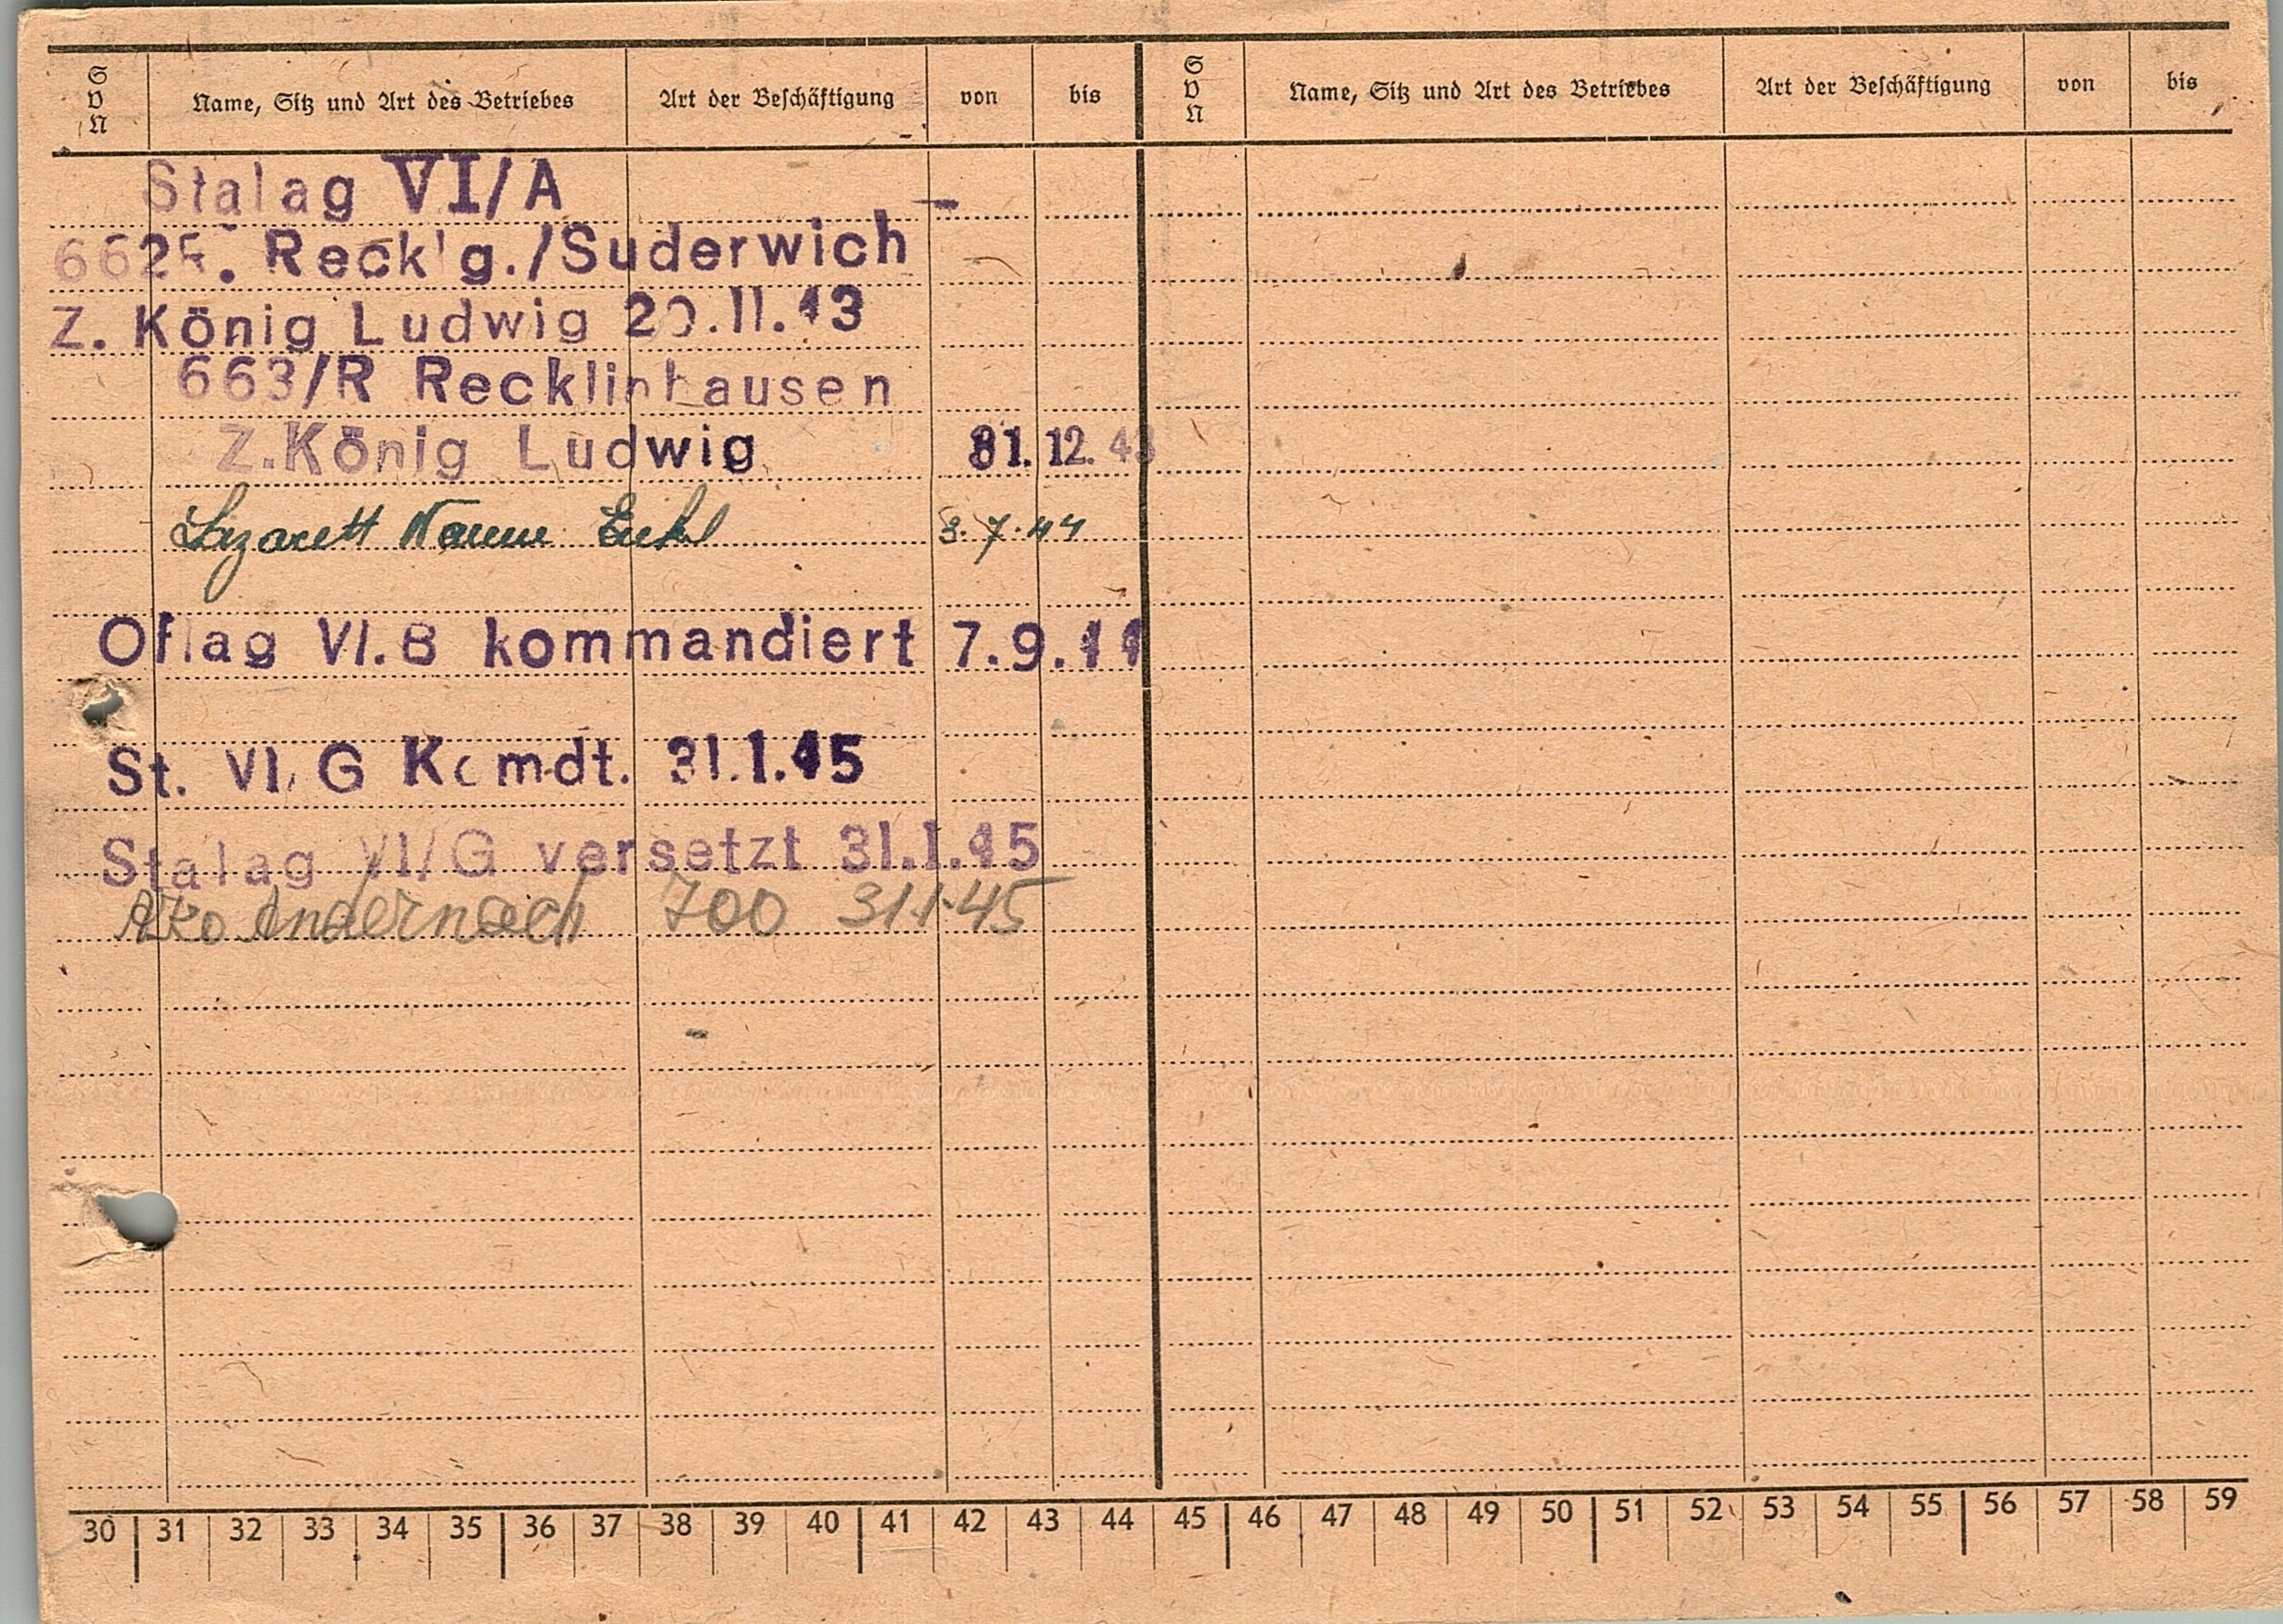 S v N Name, Sitz und Art des Betriebes Art der Beschäftigung von bis S v N Name, Sitz und Art des Betriebes Art der Beschäftigung von bis
Stalag VI/A
662R. Reck'g./Suderwich
Z. König Ludwig 20.11.43
663/R Recklinhausen
Z.König Ludwig 31.12.43
Lazarett Wanne Eickel 3.7.44
Oflag VI.B kommandiert 7.9.44
St. VI. G Komdt. 31.1.45
Stalag VI/G versetzt 31.1.45
Andernach 700 31.1.45
30 31 32 33 34 35 36 37 38 39 40 41 42 43 44 45 46 47 48 49 50 51 52 53 54 55 56 57 58 59